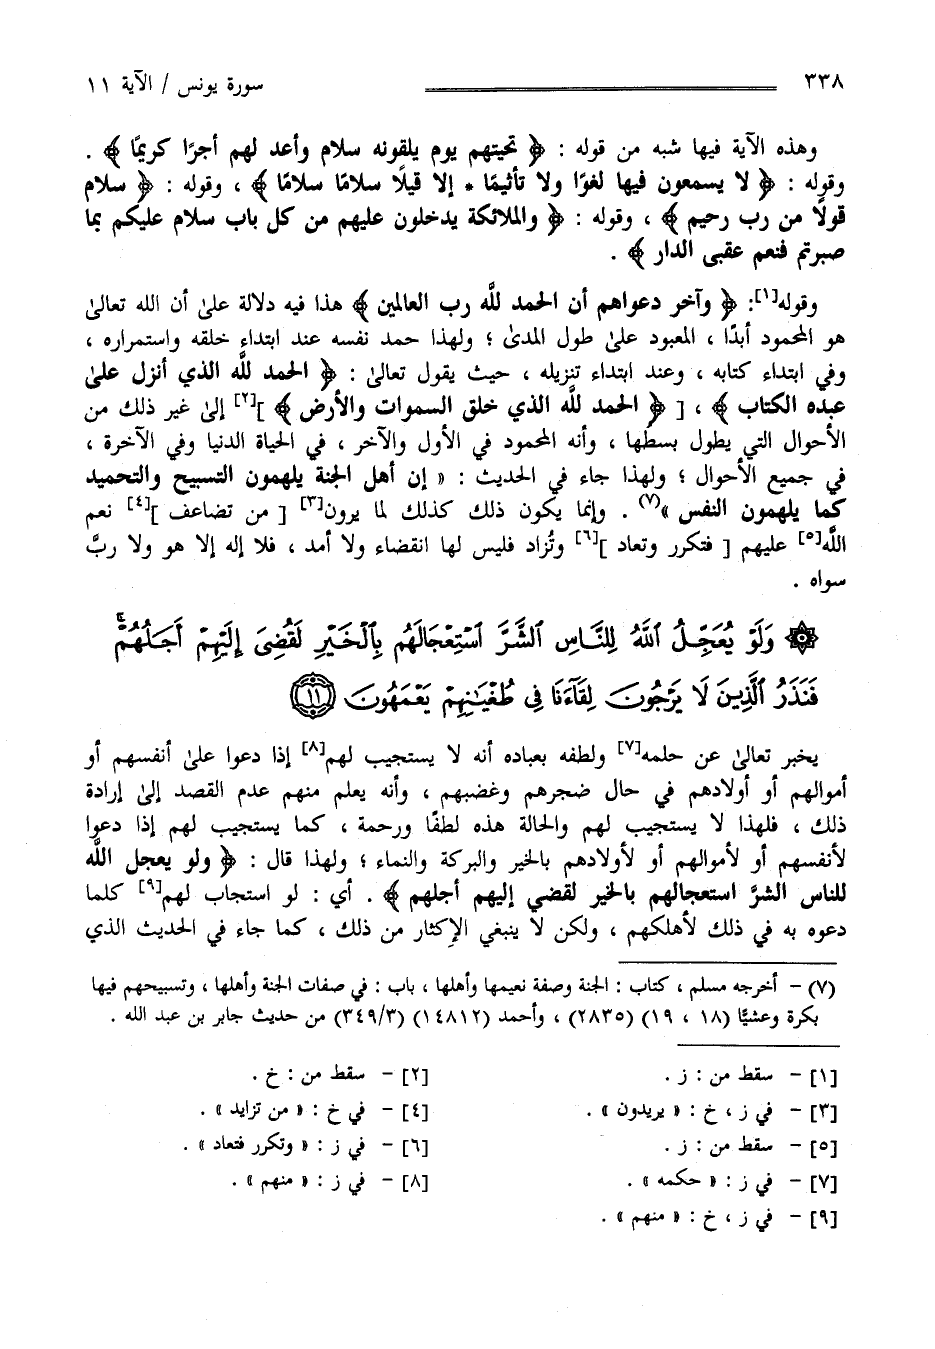 ٣٣٨ سورة يونس / الآية ١١
وهذه الآية فيها شبه من قوله : ﴿ تحيتهم يوم يلقونه سلام وأعد لهم أجرًا كريمًا ﴾ .
وقوله : ﴿ لا يسمعون فيها لغوًا ولا تأثيمًا * إلا قيلًا سلامًا سلامًا ﴾ ، وقوله : ﴿ سلام
قولًا من رب رحيم ﴾ ، وقوله : ﴿ والملائكة يدخلون عليهم من كل باب سلام عليكم بما
صبرتم فنعم عقبى الدار ﴾ .
وقوله[١]: ﴿ وآخر دعواهم أن الحمد للَّه رب العالمين ﴾ هذا فيه دلالة علىٰ أن الله تعالىٰ
هو المحمود أبدًا ، المعبود علىٰ طول المدىٰ ؛ ولهذا حمد نفسه عند ابتداء خلقه واستمراره ،
وفي ابتداء كتابه ، وعند ابتداء تنزيله ، حيث يقول تعالىٰ : ﴿ الحمد للَّه الذي أنزل علىٰ
عبده الكتاب ﴾ ، [ ﴿ الحمد للَّه الذي خلق السموات والأرض ﴾ ][٢] إلىٰ غير ذلك من
الأحوال التي يطول بسطها ، وأنه المحمود في الأول والآخر ، في الحياة الدنيا وفي الآخرة ،
في جميع الأحوال ؛ ولهذا جاء في الحديث : « إن أهل الجنة يلهمون التسبيح والتحميد
كما يلهمون النفس »(٧) . وإنما يكون ذلك كذلك لما يرون[٣] [ من تضاعف ][٤] نعم
اللَّه[٥] عليهم [ فتكرر وتعاد ][٦] وتُزاد فليس لها انقضاء ولا أمد ، فلا إله إلا هو ولا ربَّ
سواه .
۞ وَلَوْ يُعَجِّلُ ٱللَّهُ لِلنَّاسِ ٱلشَّرَّ ٱسْتِعْجَالَهُم بِٱلْخَيْرِ لَقُضِىَ إِلَيْهِمْ أَجَلُهُمْ ۖ
فَنَذَرُ ٱلَّذِينَ لَا يَرْجُونَ لِقَآءَنَا فِى طُغْيَٰنِهِمْ يَعْمَهُونَ ١١
يخبر تعالىٰ عن حلمه[٧] ولطفه بعباده أنه لا يستجيب لهم[٨] إذا دعوا علىٰ أنفسهم أو
أموالهم أو أولادهم في حال ضجرهم وغضبهم ، وأنه يعلم منهم عدم القصد إلىٰ إرادة
ذلك ، فلهذا لا يستجيب لهم والحالة هذه لطفًا ورحمة ، كما يستجيب لهم إذا دعوا
لأنفسهم أو لأموالهم أو لأولادهم بالخير والبركة والنماء ؛ ولهذا قال : ﴿ ولو يعجل اللَّه
للناس الشرَّ استعجالهم بالخير لقضي إليهم أجلهم ﴾ . أي : لو استجاب لهم[٩] كلما
دعوه به في ذلك لأهلكهم ، ولكن لا ينبغي الإكثار من ذلك ، كما جاء في الحديث الذي
(٧) - أخرجه مسلم ، كتاب : الجنة وصفة نعيمها وأهلها ، باب : في صفات الجنة وأهلها ، وتسبيحهم فيها
بكرة وعشيًّا (١٨ ، ١٩) (٢٨٣٥) ، وأحمد (١٤٨١٢) (٣٤٩/٣) من حديث جابر بن عبد الله .
[١] - سقط من : ز . [٢] - سقط من : خ .
[٣] - في ز ، خ : « يريدون » . [٤] - في خ : « من تزايد » .
[٥] - سقط من : ز . [٦] - في ز : « وتكرر فتعاد » .
[٧] - في ز : « حكمه » . [٨] - في ز : « منهم » .
[٩] - في ز ، خ : « منهم » .